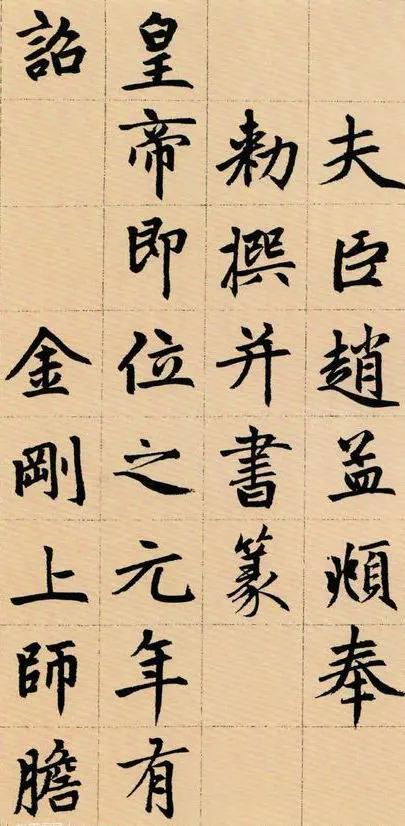 夫臣趙孟頫奉
勅撰并書篆
皇帝即位之元年有
詔金剛上師膽